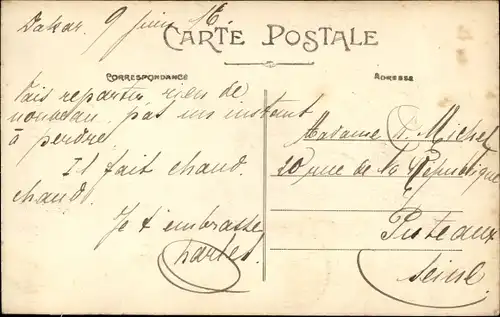 Dakar. 9 Juin 16.
CARTE POSTALE
CORRESPONDANCE
ADRESSE
Vais repartir rien de
nouveau, pas un instant
à perdre.
Il fait chaud.
chaud.
Je t'embrasse
Charles.
Madame Michel
20 rue de la République
Puteaux
Seine